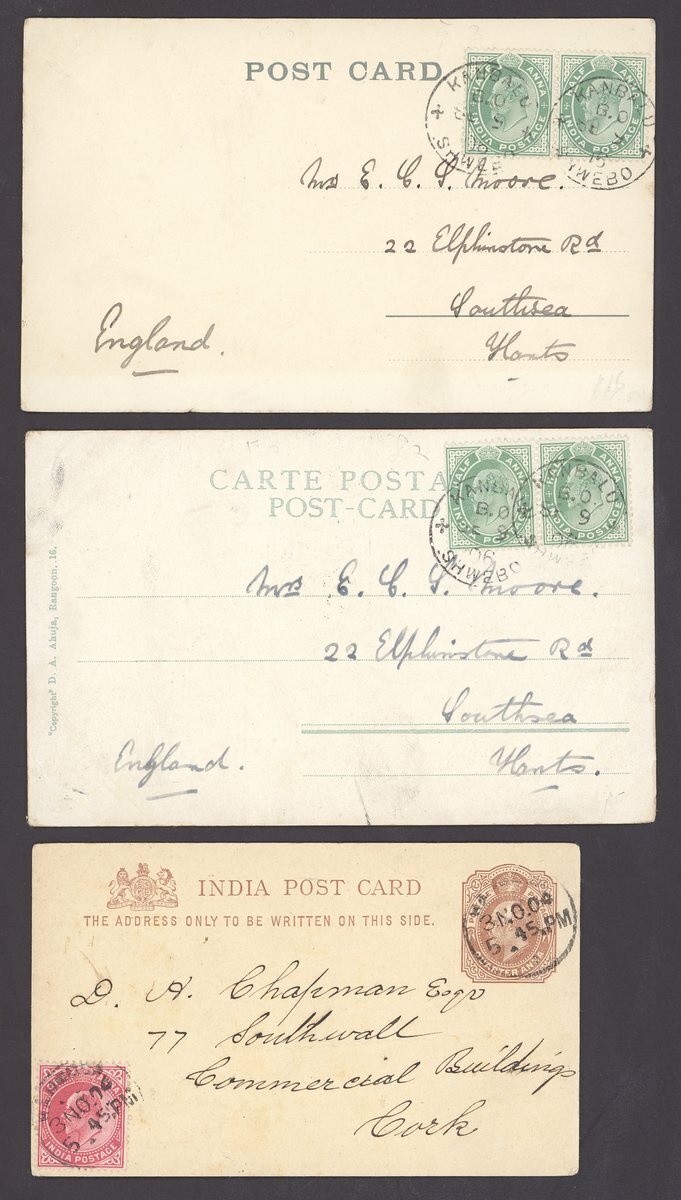 POST CARD
HALF ANNA
INDIA POSTAGE
HALF ANNA
INDIA POSTAGE
KANBALU
B.O
5
SHWEBO
KANBALU
B.O
SHWEBO
Mrs E. C. S. Moore.
22 Elphinstone Rd
Southsea
England.
Hants
CARTE POSTA
POST-CARD
HALF ANNA
INDIA POSTAGE
HALF ANNA
INDIA POSTAGE
KANBALU
B.O
06
SHWEBO
KANBALU
B.O
9
Copyright D. A. Ahuja, Rangoon. 16.
Mrs E. C. S. Moore.
22 Elphinstone Rd
Southsea
England.
Hants.
INDIA POST CARD
THE ADDRESS ONLY TO BE WRITTEN ON THIS SIDE.
QUARTER ANNA
3 NO.04
5.45.PM
D. A. Chapman Esqr
77 Southwall
Commercial Buildings
Cork
3 NO.04
5.45.PM
INDIA POSTAGE